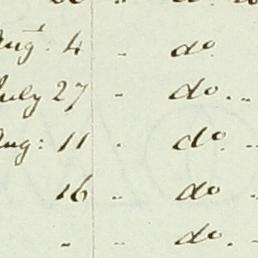 Aug.t 4 " do
July 27 " do ..
Aug: 11 " do. ..
16 " do ..
" " do. ..